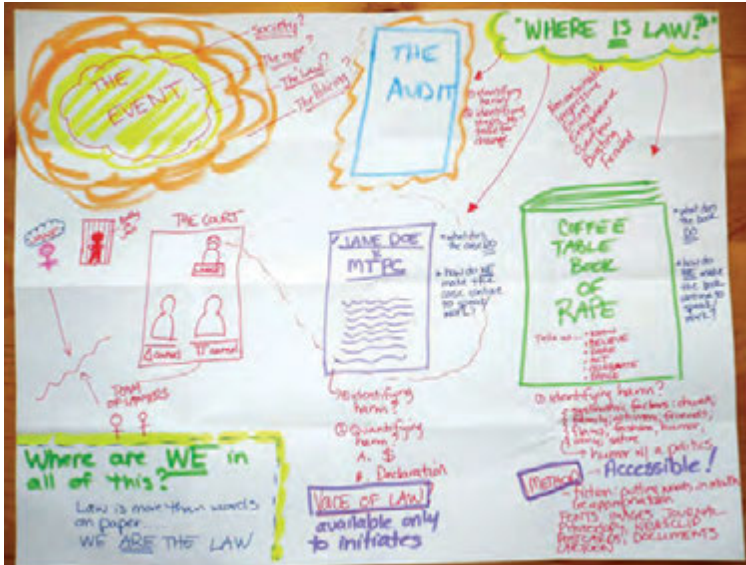 Society?
The rape?
The Law?
The Policing?
THE
EVENT
THE
AUDIT
① identifying
harm
② identifying
steps to
take for
change
"WHERE IS LAW?"
THE COURT
JUDGE
TEAM
OF LAWYERS
JANE DOE
v
MTPC
• what does
the case DO
• how do WE
make the
case continue
to speak/
work?
① identifying
harm?
② Quantifying
harm?
A. $
B. Declaration
VOICE OF LAW
available only
to initiates
COFFEE
TABLE
BOOK
OF
RAPE
• what does
the book
DO
• how do
WE make
the book
continue to
speak/
work?
① identifying harm?
humour as a politics
→ Accessible!
METHOD
FONTS, IMAGES, JOURNAL
POSTCARDS, DOCUMENTS
CARTOON
Where are WE in
all of this?
Law is more than words
on paper....
WE ARE THE LAW